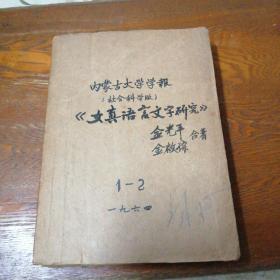 内蒙古大学学报
(社会科学版)
《女真语言文字研究》
金光平
金启孮 合著
1-2
一九六四